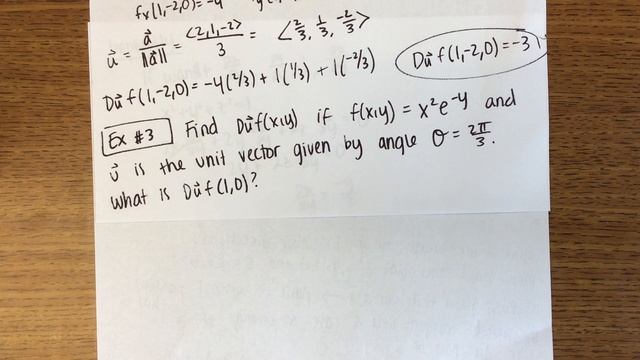 fx(1,-2,0) = -4
u⃗ = a⃗/‖a⃗‖ = <2,1,-2>/3 = <2/3, 1/3, -2/3>
Du⃗ f(1,-2,0) = -4(2/3) + 1(1/3) + 1(-2/3)
Du⃗ f(1,-2,0) = -3
Ex #3 Find Du⃗f(x,y) if f(x,y) = x²e^-y and
u⃗ is the unit vector given by angle θ = 2π/3.
What is Du⃗f(1,0)?